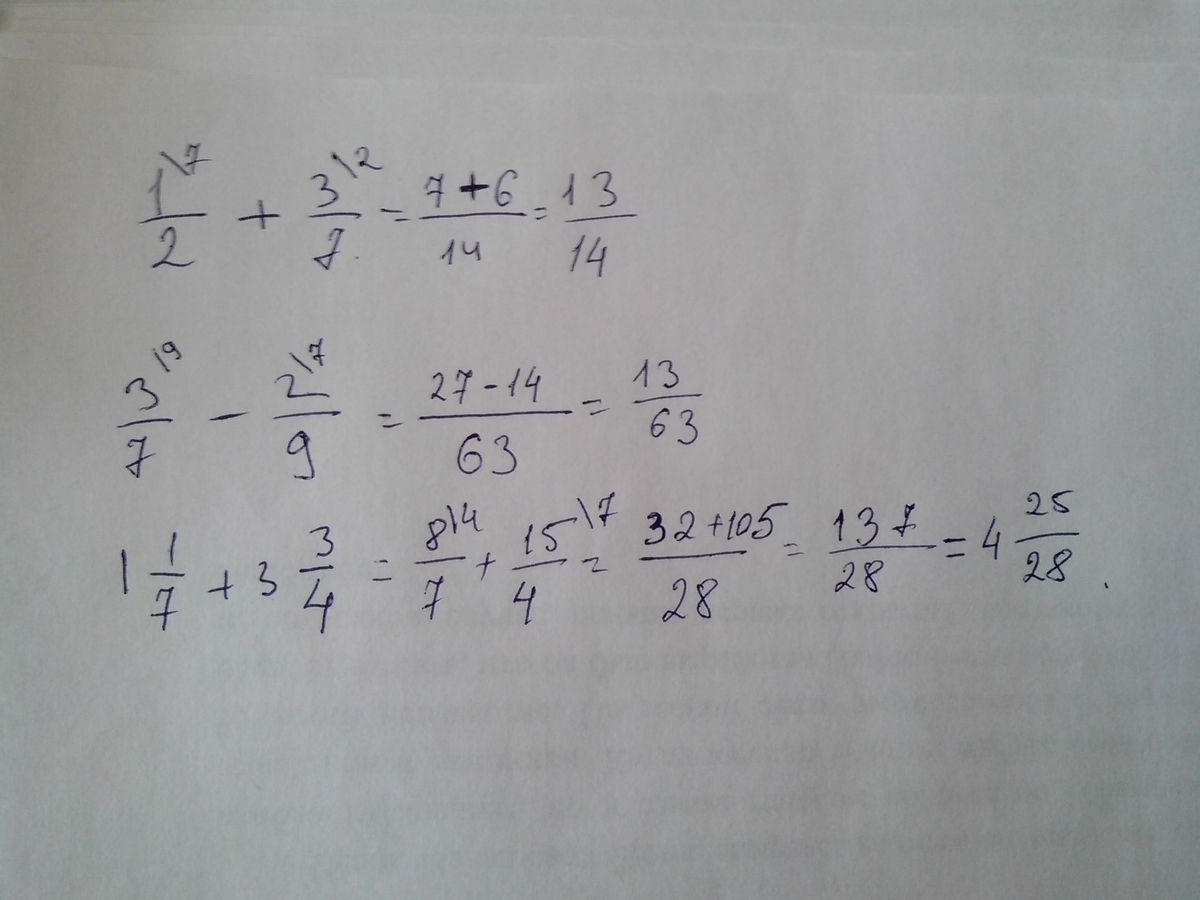 1\7/2 + 3\2/7 = 7+6/14 = 13/14
3\9/7 - 2\7/9 = 27-14/63 = 13/63
1 1/7 + 3 3/4 = 8\4/7 + 15\7/4 = 32+105/28 = 137/28 = 4 25/28.